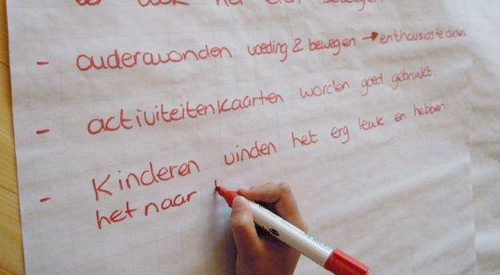 - ouderavonden voeding & bewegen → enthousiaste ouders
- activiteitenkaarten worden goed gebruikt
- Kinderen vinden het erg leuk en hebben
het naar